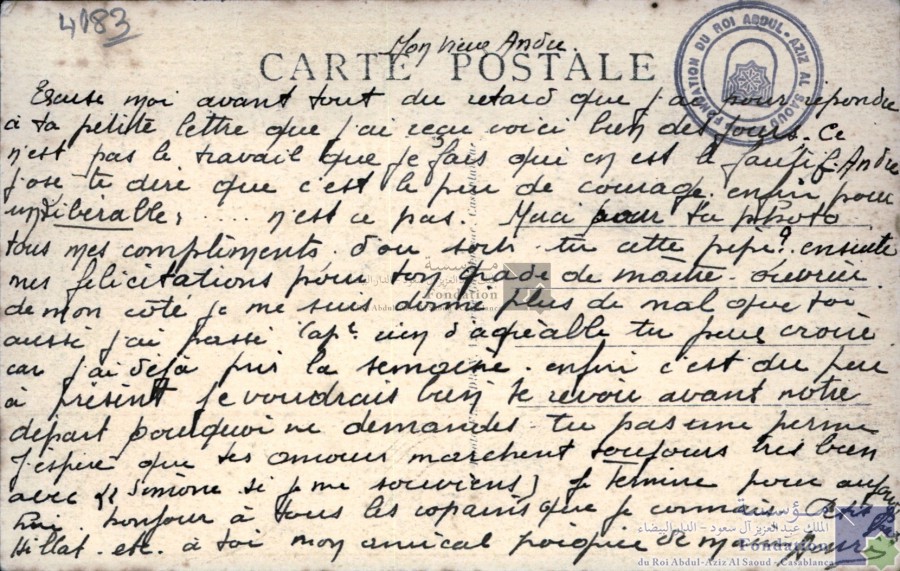 4183
Mon vieux André
CARTE POSTALE
FONDATION DU ROI ABDUL-AZIZ AL SAOUD
Excuse moi avant tout du retard que j'ai pour répondre
à ta petite lettre que j'ai reçu voici bien des jours. Ce
n'est pas le travail que je fais qui en est le fautif. André
j'ose te dire que c'est le peu de courage. enfin pour
un libérable, ..... n'est ce pas. Merci pour ta photo
tous mes compliments. d'ou sors-tu cette pépé? ensuite
mes félicitations pour ton grade de maître-ouvrier
de mon côté je me suis donné plus de mal que toi
aussi j'ai passé rien d'agréable tu peux croire
car j'ai déjà pris la semaine. enfin c'est du peu
à présent je voudrais bien te revoir avant notre
départ pourquoi ne demandes-tu pas une perme
J'espère que tes amours marchent toujours très bien
avec (Simone si je me souviens) je termine pour aujourd'
hui. bonjour à tous les copains que je connais
Hillat. etc. à toi mon amical poignée de main
مؤسسة
الملك عبد العزيز آل سعود - الدار البيضاء
Fondation
du Roi Abdul-Aziz Al Saoud - Casablanca